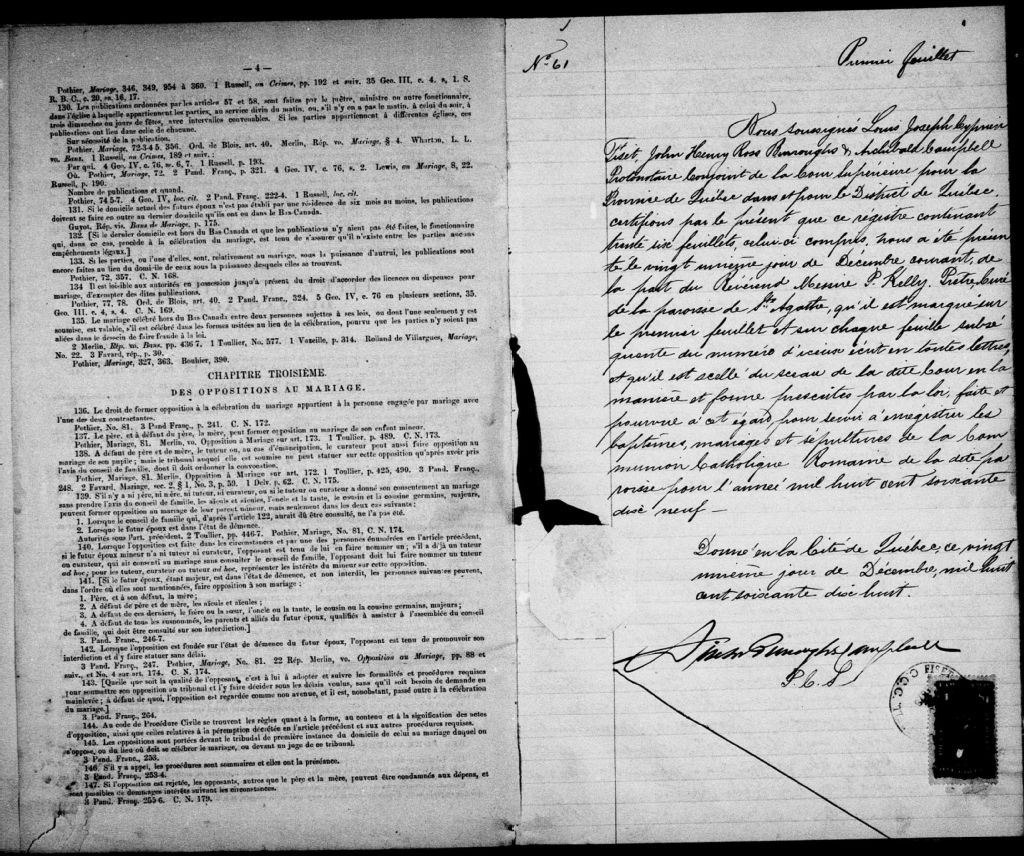 — 4 —
Pothier, Mariage, 346, 349, 954 à 360. 1 Russell, on Crimes, pp. 192 et suiv. 35 Geo. III, c. 4. s, 1. S.
R. B. C., c. 20, ss. 16, 17.
130. Les publications ordonnées par les articles 57 et 58, sont faites par le prêtre, ministre ou autre fonctionnaire,
dans l'église à laquelle appartiennent les parties, au service divin du matin, ou, s'il n'y en a pas le matin, à celui du soir, à
trois dimanches ou jours de fêtes, avec intervalles convenables. Si les parties appartiennent à différentes églises, ces
publications ont lieu dans celle de chacune.
Sur nécessité de la publication.
Pothier, Mariage, 72-3-4 5, 356. Ord. de Blois, art. 40. Merlin, Rép. vo. Mariage, § 4. Wharton, L. L.
vo. Bans. 1 Russell, on Crimes, 189 et suiv. :
Par qui. 4 Geo. IV, c. 76, s. 6, 7. 1 Russell, p. 193.
Où. Pothier, Mariage, 72. 2 Pand. Franç., p. 321. 4 Geo. IV, c. 76, s. 2. Lewis, on Mariage, 8, 22.
Russell, p. 190.
Nombre de publications et quand.
Pothier, 74 5-7. 4 Geo. IV, loc. cit. 2 Pand. Franç. 222-4. 1 Russell, loc. cit.
131. Si le domicile actuel des futurs époux n'est pas établi par une résidence de six mois au moins, les publications
doivent se faire en outre au dernier domicile qu'ils ont eu dans le Bas-Canada.
Guyot, Rép. vis. Bans de Mariage, p. 175.
132. [Si le dernier domicile est hors du Bas-Canada et que les publications n'y aient pas été faites, le fonctionnaire
qui, dans ce cas, procède à la célébration du mariage, est tenu de s'assurer qu'il n'existe entre les parties aucuns
empêchements légaux.]
133. Si les parties, ou l'une d'elles, sont, relativement au mariage, sous la puissance d'autrui, les publications sont
encore faites au lieu du domicile de ceux sous la puissance desquels elles se trouvent.
Pothier, 72, 357. C. N. 168.
134 Il est loisible aux autorités en possession jusqu'à présent du droit d'accorder des licences ou dispenses pour
mariage, d'exempter des dites publications.
Pothier, 77, 78. Ord. de Blois, art. 40. 2 Pand. Franç., 324. 5 Geo IV, c. 76 en plusieurs sections, 35.
Geo. III, c. 4, s. 4. C. N. 169.
135. Le mariage célébré hors du Bas-Canada entre deux personnes sujettes à ses lois, ou dont l'une seulement y est
soumise, est valable, s'il est célébré dans les formes usitées au lieu de la célébration, pourvu que les parties n'y soient pas
allées dans le dessein de faire fraude à la loi.
2 Merlin, Rép. vo. Bans, pp. 436 7. 1 Toullier, No. 577. 1 Vazeille, p. 314. Rolland de Villargues, Mariage,
No. 22. 3 Favard, rép., p. 30.
Pothier, Mariage, 327, 363. Bouhier, 390.
CHAPITRE TROISIÈME.
DES OPPOSITIONS AU MARIAGE.
136. Le droit de former opposition à la célébration du mariage appartient à la personne engagée par mariage avec
l'une des deux contractantes.
Pothier, No. 81. 3 Pand Franç., p. 241. C. N. 172.
137. Le père, et à défaut du père, la mère, peut former opposition au mariage de son enfant mineur.
Pothier, Mariage, 81. Merlin, vo. Opposition à Mariage sur art. 173. 1 Toullier, p. 489. C. N. 173.
138. A défaut de père et de mère, le tuteur ou, au cas d'émancipation, le curateur peut aussi faire opposition au
mariage de son pupile ; mais le tribunal auquel elle est soumise ne peut statuer sur cette opposition qu'après avoir pris
l'avis du conseil de famille, dont il doit ordonner la convocation.
Pothier, Mariage, 81. Merlin, Opposition à Mariage sur art, 172. 1 Toullier, p. 425, 490. 3 Pand. Franç.,
248. 2 Favard, Mariage, sec. 2, § 1, No. 3, p. 59. 1 Delv. p. 62. C. N. 175.
139. S'il n'y a ni père, ni mère, ni tuteur, ni curateur, ou si le tuteur ou curateur a donné son consentement au mariage
sans prendre l'avis du conseil de famille, les aïeuls et aïeules, l'oncle et la tante, le cousin et la cousine germains, majeurs,
peuvent former opposition au mariage de leur parent mineur, mais seulement dans les deux cas suivants :
1. Lorsque le conseil de famille qui, d'après l'article 122, aurait dû être consulté, ne l'a pas été.
2. Lorsque le futur époux est dans l'état de démence.
Autorités sous l'art. précédent, 2 Toullier, pp. 446-7. Pothier, Mariage, No. 81, C. N. 174.
140. Lorsque l'opposition est faite dans les circonstances et par une des personnes énumérées en l'article précédent,
si le futur époux mineur n'a ni tuteur ni curateur, l'opposant est tenu de lui en faire nommer un ; s'il a déjà un tuteur
ou curateur, qui ait consenti au mariage sans consulter le conseil de famille, l'opposant doit lui faire nommer un tuteur
ad hoc ; pour les tuteur, curateur ou tuteur ad hoc, représenter les intérêts du mineur sur cette opposition.
141. [Si le futur époux, étant majeur, est dans l'état de démence, et non interdit, les personnes suivantes peuvent,
dans l'ordre où elles sont mentionnées, faire opposition à son mariage :
1. Père, et à son défaut, la mère ;
2. A défaut de père et de mère, les aïeuls et aïeules ;
3. A défaut de ces derniers, le frère ou la sœur, l'oncle ou la tante, le cousin ou la cousine germains, majeurs ;
4. A défaut de tous les susnommés, les parents et alliés du futur époux, qualifiés à assister à l'assemblée du conseil
de famille, qui doit être consulté sur son interdiction.]
3. Pand. Franç., 246-7.
142. Lorsque l'opposition est fondée sur l'état de démence du futur époux, l'opposant est tenu de promouvoir son
interdiction et d'y faire statuer sans délai.
3 Pand. Franç., 247. Pothier, Mariage, No. 81. 22 Rép. Merlin, vo. Opposition au Mariage, pp. 88 et
suiv., et No. 4 sur art. 174. C. N. 174.
143. [Quelle que soit la qualité de l'opposant, c'est à lui à adopter et suivre les formalités et procédures requises
pour soumettre son opposition au tribunal et l'y faire décider sous les délais voulus, sans qu'il soit besoin de demande en
mainlevée ; à défaut de quoi, l'opposition est regardée comme non avenue, et il est, nonobstant, passé outre à la célébration
du mariage.]
3 Pand. Franç., 264.
144. Au code de Procédure Civile se trouvent les règles quant à la forme, au contenu et à la signification des actes
d'opposition, ainsi que celles relatives à la péremption décrétée en l'article précédent et aux autres procédures requises.
145. Les oppositions sont portées devant le tribudal de première instance du domicile de celui au mariage duquel on
s'oppose, ou du lieu où doit se célébrer le mariage, ou devant un juge de ce tribunal.
3 Pand. Franç., 253.
146. S'il y a appel, les procédures sont sommaires et elles ont la préséance.
3 Pand. Franç., 253-4.
147. Si l'opposition est rejetée, les opposants, autres que le père et la mère, peuvent être condamnés aux dépens, et
sont passibles de dommages intérêts suivant les circonstances.
3 Pand. Franç. 255 6. C. N. 179.
No. 61
Premier feuillet
Nous soussignés Louis Joseph Cyprien
Fiset, John Henry Ross Burroughs & Archibald Campbell
Protonotaire Conjoint de la Cour Superieure pour la
Province de Québec dans et pour le District de Québec,
certifions par le présent que ce registre contenant
trente six feuillets, celui-ci compris, nous a été présen
té le vingt unième jour de Décembre courant, de
la part du Révérend Messire P. Kelly, Prêtre, Curé
de la paroisse de Ste Agathe, qu'il est marqué sur
le premier feuillet et sur chaque feuille subsé
quente du numéro d'iceux écrit en toutes lettres,
et qu'il est scellé du sceau de la dite Cour en la
manière et forme prescrites par la loi, faite et
pourvue à cet égard, pour servir à enregistrer les
baptêmes, mariages et sépultures de la Com
munion Catholique Romaine de la dite pa
roisse pour l'année mil huit cent soixante
dix neuf —
Donné en la Cité de Québec, ce vingt
unième jour de Décembre, mil huit
cent soixante dix huit.
Fiset Burroughs Campbell
P. C. S